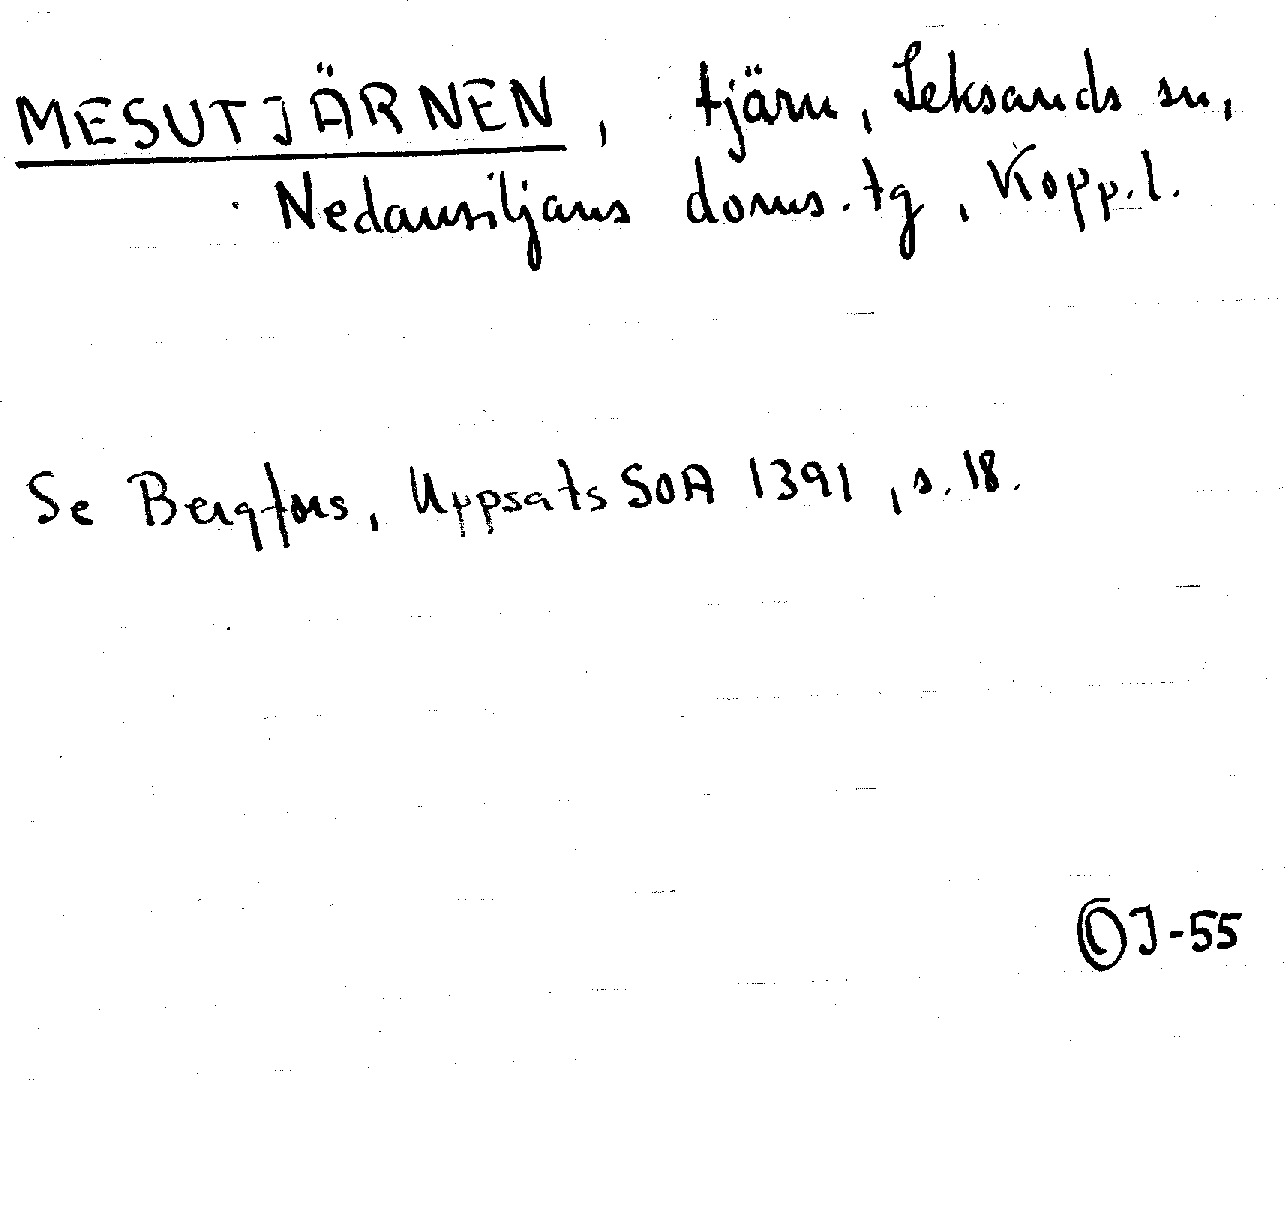 MESUTJÄRNEN, tjärn, Leksands sn,
Nedansiljans doms.tg, Kopp.l.
Se Bergfors, Uppsats SOA 1391, s. 18.
OJ-55